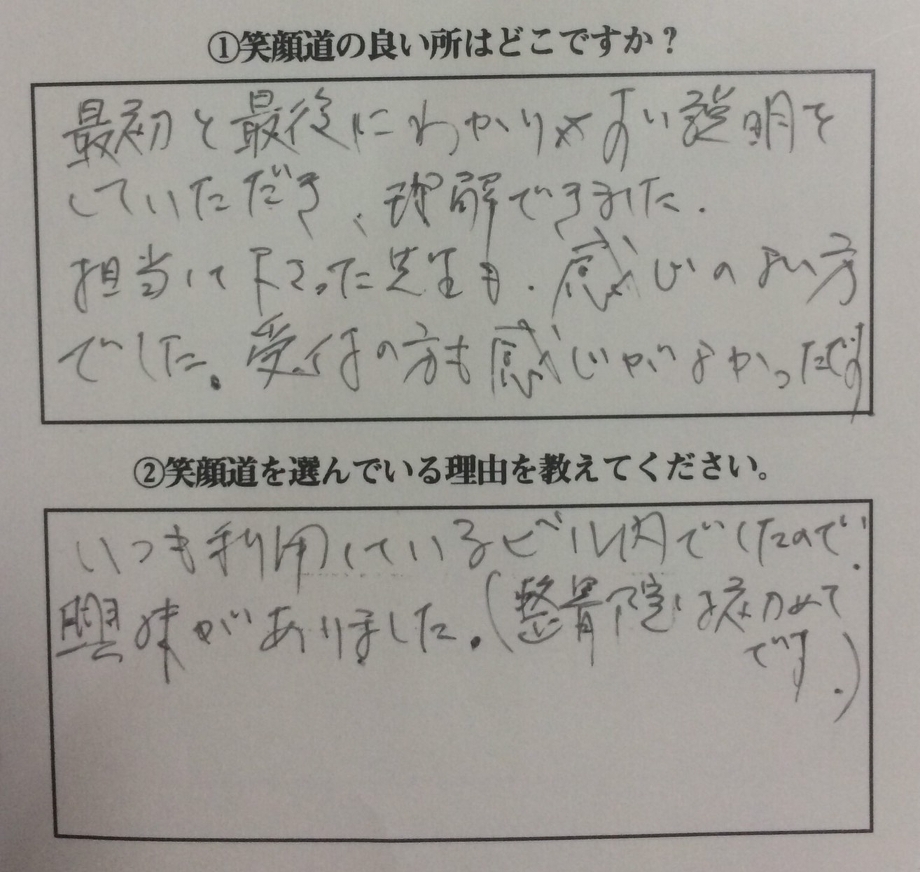 ①笑顔道の良い所はどこですか？
最初と最後にわかりやすい説明を
していただき、理解できました.
担当して下さった先生も、感じのよい方
でした。受付の方も感じがよかったです
②笑顔道を選んでいる理由を教えてください。
いつも利用しているビル内でしたので、
興味がありました。(整骨院は初めて
です.)